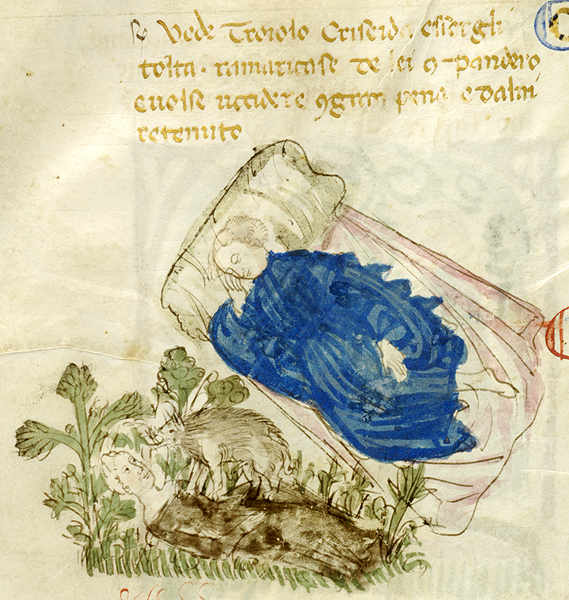 se Vede Troiolo Criseida essergli
tolta · ramaricase de lei ꝯ pandero
e uolse uccidere ꝯ gran pena e da lui
retenuto